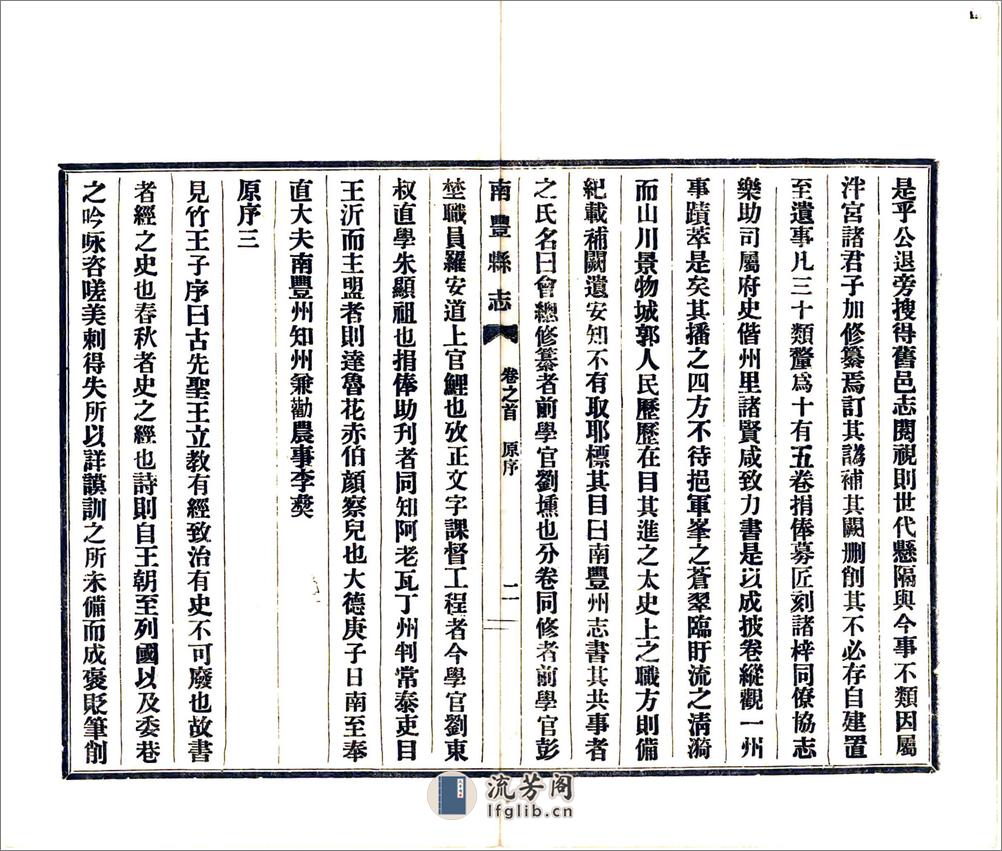 是乎公退旁搜得舊邑志閱視則世代懸隔與今事不類因屬
泮宮諸君子加修纂焉訂其譌補其闕刪創其不必存自建置
至遺事凡三十類釐爲十有五卷捐俸募匠刻諸梓同僚協志
樂助司屬府史偕州里諸賢咸致力書是以成披卷縱觀一州
事蹟萃是矣其播之四方不待挹軍峯之蒼翠臨盱流之淸漪
而山川景物城郭人民歷歷在目其進之太史上之職方則備
紀載補闕遺安知不有取耶標其目曰南豐州志書其共事者
之氏名曰會總修纂者前學官劉壎也分卷同修者前學官彭
南豐縣志 卷之首 原序 二
埜職員羅安道上官鯉也攷正文字課督工程者今學官劉東
叔直學朱顯祖也捐俸助刋者同知阿老瓦丁州判常泰吏目
王沂而主盟者則達魯花赤伯顏察兒也大德庚子日南至奉
直大夫南豐州知州兼勸農事李彜
原序三
見竹王子序曰古先聖王立教有經致治有史不可廢也故書
者經之史也春秋者史之經也詩則自王朝至列國以及委巷
之吟咏咨嗟美刺得失所以詳謨訓之所未備而成褒貶筆削
流芳阁
lfglib.cn